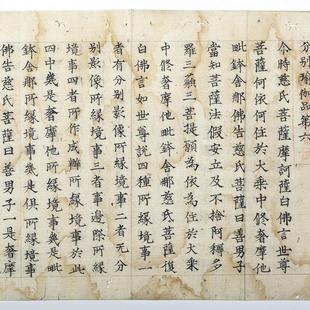 分別瑜伽品第六
尒時慈氏菩薩摩訶薩白佛言世尊
菩薩何依何住於大乘中修奢摩他
毗鉢舍那佛告慈氏菩薩曰善男子
當知菩薩法假安立及不捨阿耨多
羅三藐三菩提願為依為住於大乘
中修奢摩他毗鉢舍那慈氏菩薩復
白佛言如世尊說四種所緣境事一
者有分別影像所緣境事二者无分
別影像所緣境事三者事邊際所緣
境事四者所作成辦所緣境事於此
四中幾是奢摩他所緣境事幾是毗
鉢舍那所緣境事幾是俱所緣境事
佛告慈氏菩薩曰善男子一是奢摩